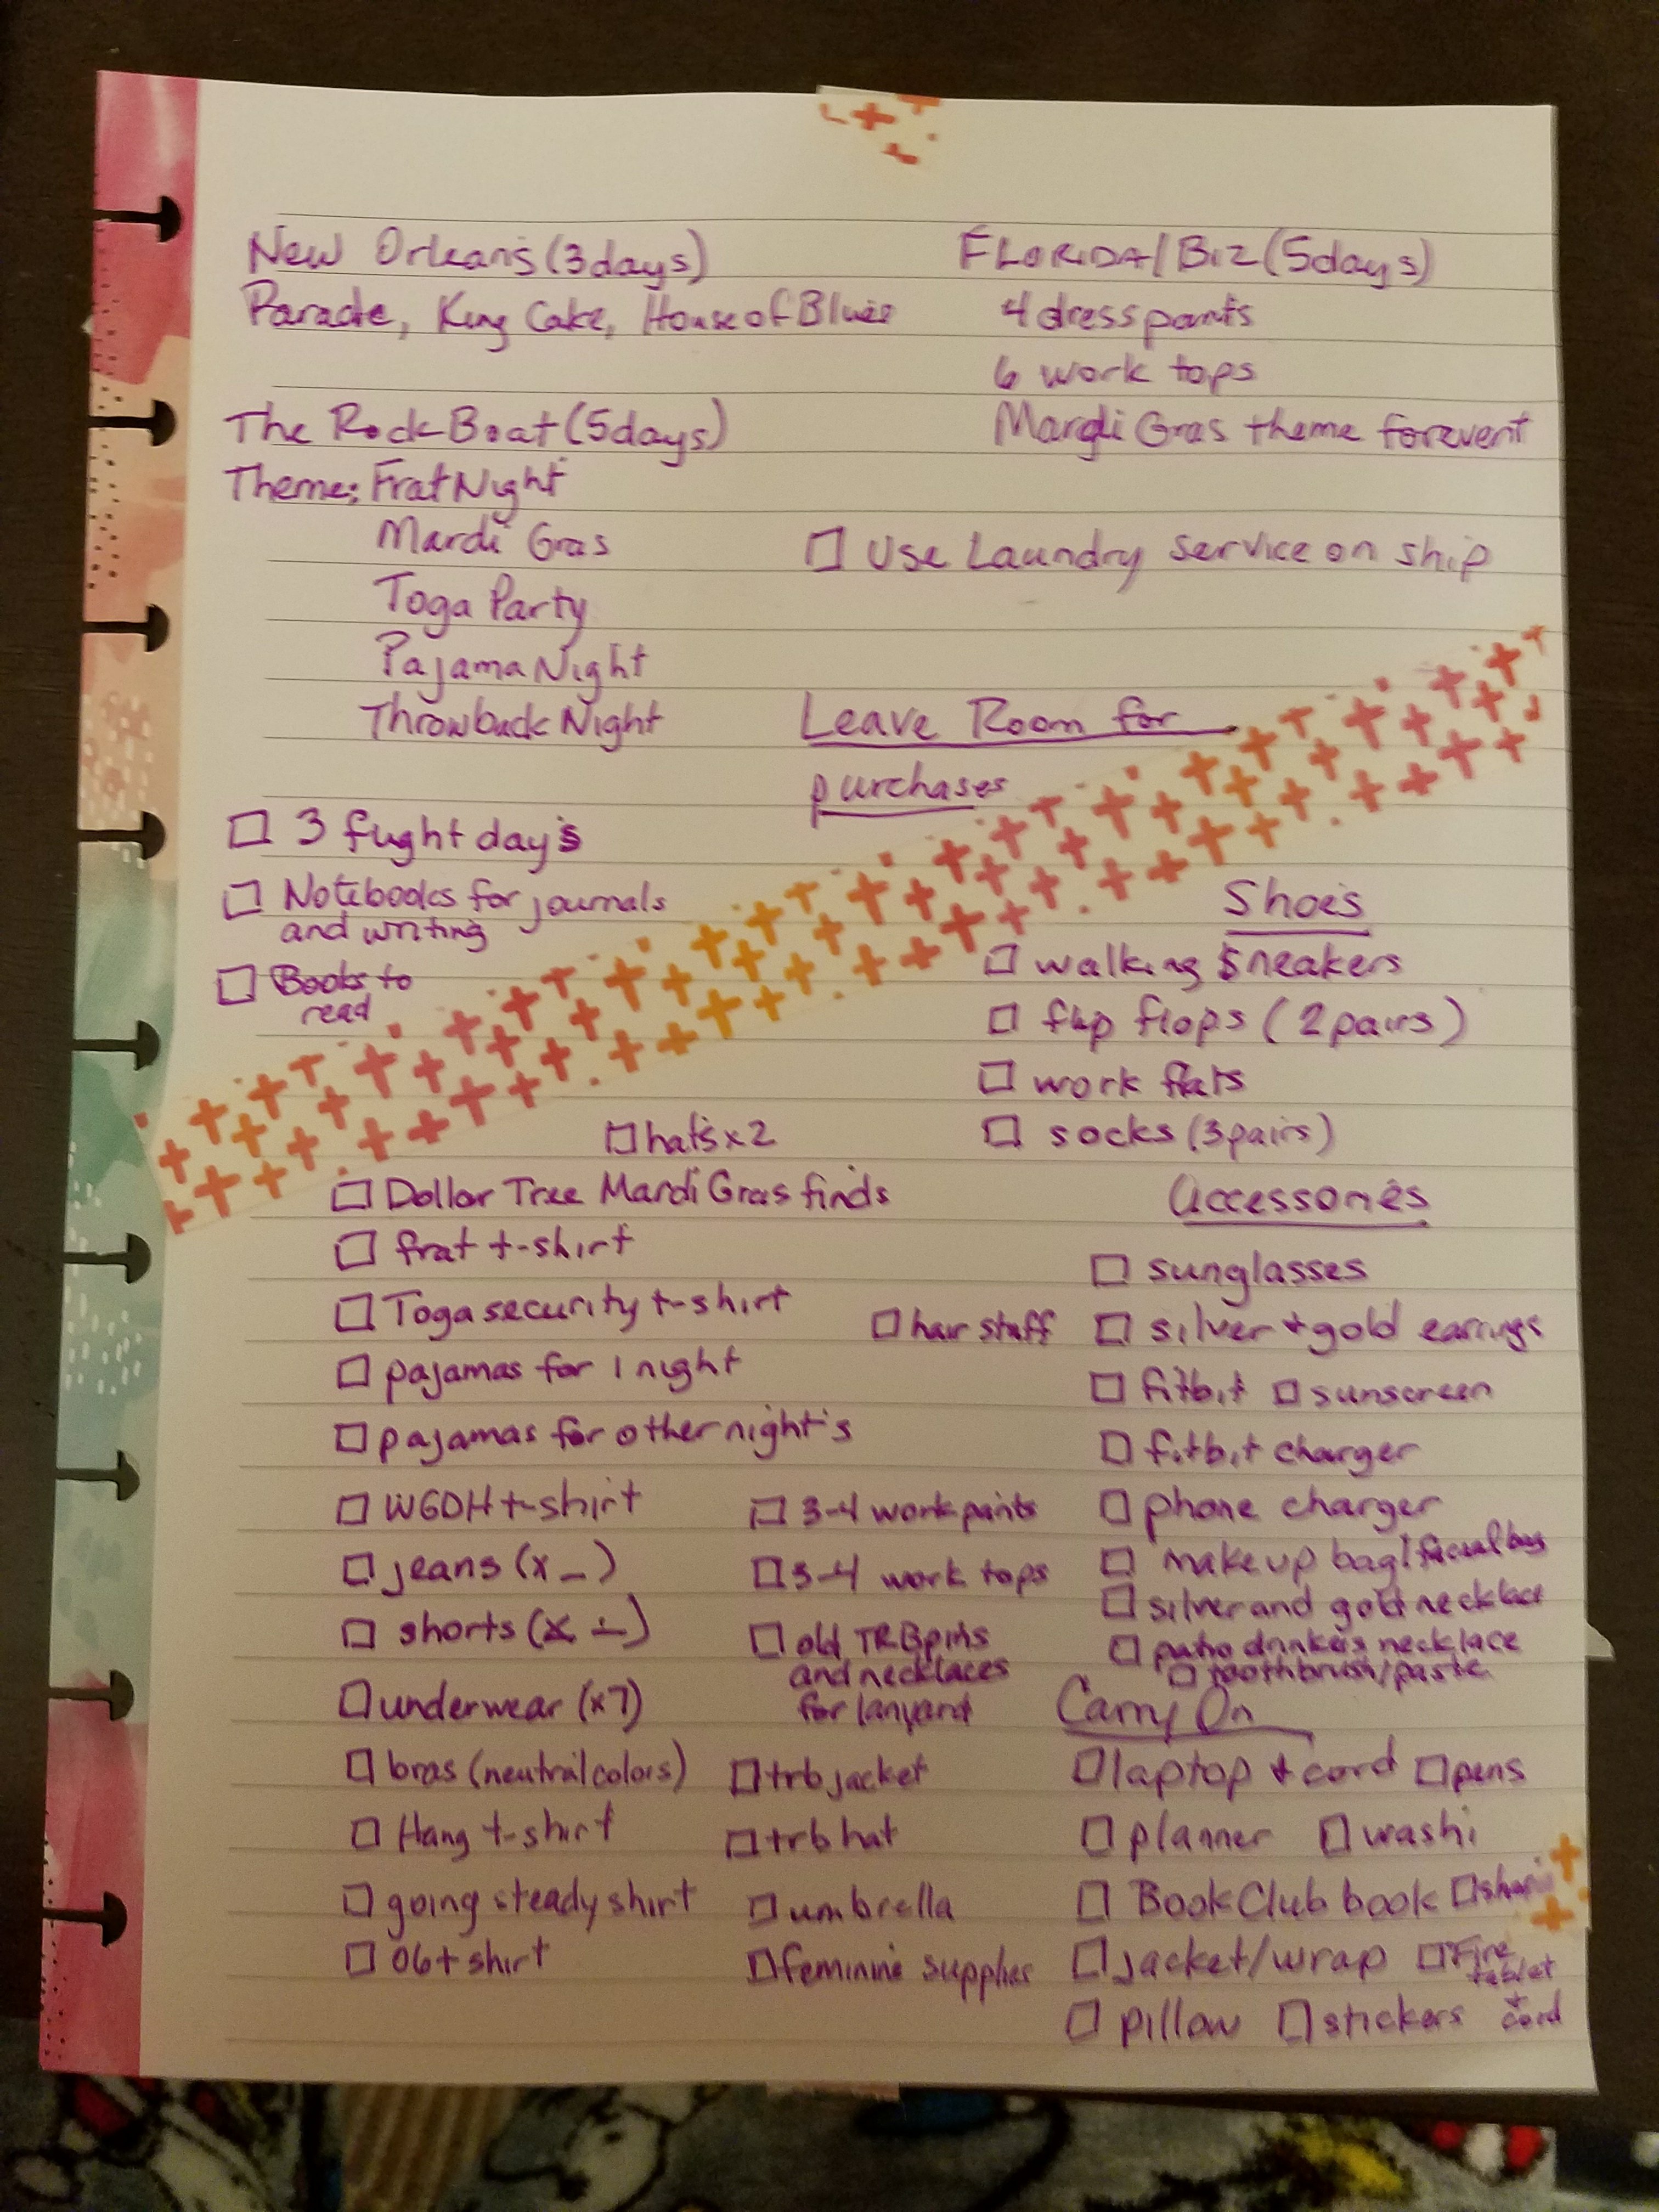 New Orleans (3 days)
Parade, King Cake, House of Blues
The Rock Boat (5 days)
Theme: Frat Night
Mardi Gras
Toga Party
Pajama Night
Throwback Night
FLORIDA/Biz (5 days)
4 dress pants
6 work tops
Mardi Gras theme for event
Use Laundry service on ship
Leave Room for
purchases
3 flight days
Notebooks for journals
and writing
Books to
read
hats x2
Dollar Tree Mardi Gras finds
frat t-shirt
Toga security t-shirt
pajamas for 1 night
pajamas for other night's
WGDH t-shirt
jeans (x _)
shorts (x _)
underwear (x7)
bras (neutral colors)
Hang t-shirt
going steady shirt
06 t shirt
hair stuff
3-4 work pants
3-4 work tops
old TRB pins
and necklaces
for lanyard
trb jacket
trb hat
umbrella
feminine supplies
Shoes
walking sneakers
flip flops (2 pairs)
work flats
socks (3 pairs)
Accessories
sunglasses
silver + gold earrings
fitbit sunscreen
fitbit charger
phone charger
makeup bag/facial bag
silver and gold necklace
patio drinkers necklace
toothbrush/paste
Carry On
laptop + cord pens
planner washi
Book Club book
jacket/wrap Fire
tablet
+
cord
pillow stickers